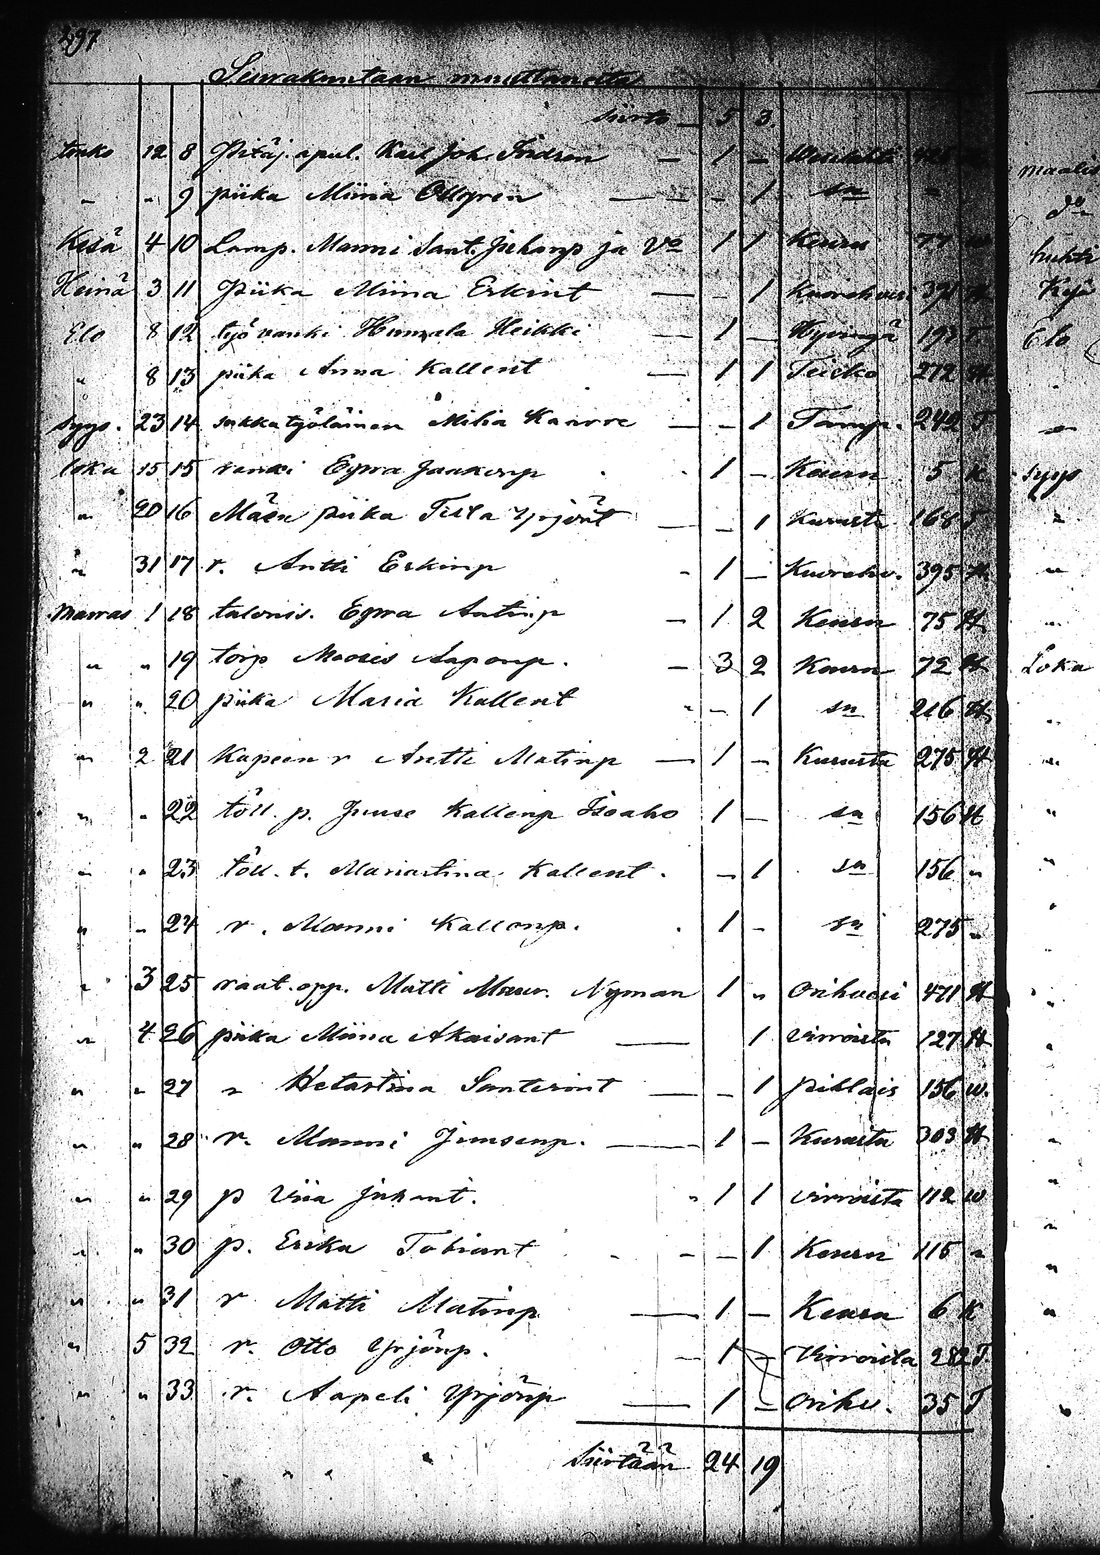 297
Seurakuntaan muuttaneita
siirto — 5 3
touko 12 8 Pitäj. apul. Karl Joh. — 1 —
„ „ 9 piika Miina — — 1 sn „
Kesä 4 10 Lamp. Manni Sant. Juhanp ja Vo 1 1 Keuru 77
Heinä 3 11 Piika Miina Erkint — — 1 Kuorehvesi 371 H
Elo 8 12 työ renki Humala Heikki — 1 — Hyvingä
„ 8 13 piika Anna Kallent — 1 1 Teisko 272 H
syys. 23 14 sukkatyöläinen Milia Kaarre — — 1 Tamp. 242 T
loka 15 15 renki Eqwa Jaakonp 1 — Keuru 5 K
„ 20 16 Mäen piika Tilta Yrjönt — — 1 Kurusta 168 T
„ 31 17 r. Antti Erkinp — 1 — Kuorehv. 395 H
marras 1 18 talonis. Eqwa Antinp — 1 2 Keuru 75 H
„ „ 19 torp Mooses Aaponp. — 3 2 Keuru 72 H
„ „ 20 piika Maria Kallent — — 1 sn 216 H
„ 2 21 Kapeen r Antti Matinp — 1 — Kurusta 275 H
„ „ 22 töll. p. Juuse Kallenp Isoaho 1 — sn 156 H
„ „ 23 töll. t. Mariastina Kallent. — 1 sn 156 „
„ „ 24 r. Manni Kallenp. 1 — sn 275 „
„ 3 25 raat. opp. Matti Maur. Nyman 1 „ Orihvesi 471 H
„ 4 26 piika Miina Akaisant — 1 Virroista 127 H
„ „ 27 „ Hetastina Santerint — — 1 Pihlajs 156 w.
„ „ 28 r. Manni Juusenp. — 1 — Kurusta 303 H
„ „ 29 p Viia Juhant. „ 1 1 Virroista 112 w
„ „ 30 p. Erika Tobiant — — 1 Keuru 115 „
„ „ 31 r Matti Matinp — 1 — Keuru 6 K
„ 5 32 r. Otto Yrjönp. — 1 — Virroista 282 T.
„ „ 33 r. Aapeli Yrjönp — 1 — Orihv. 35 T
Siirtään 24 19
maalis
do
huhti
Kesä
Elo
„
syys
„
„
„
Loka